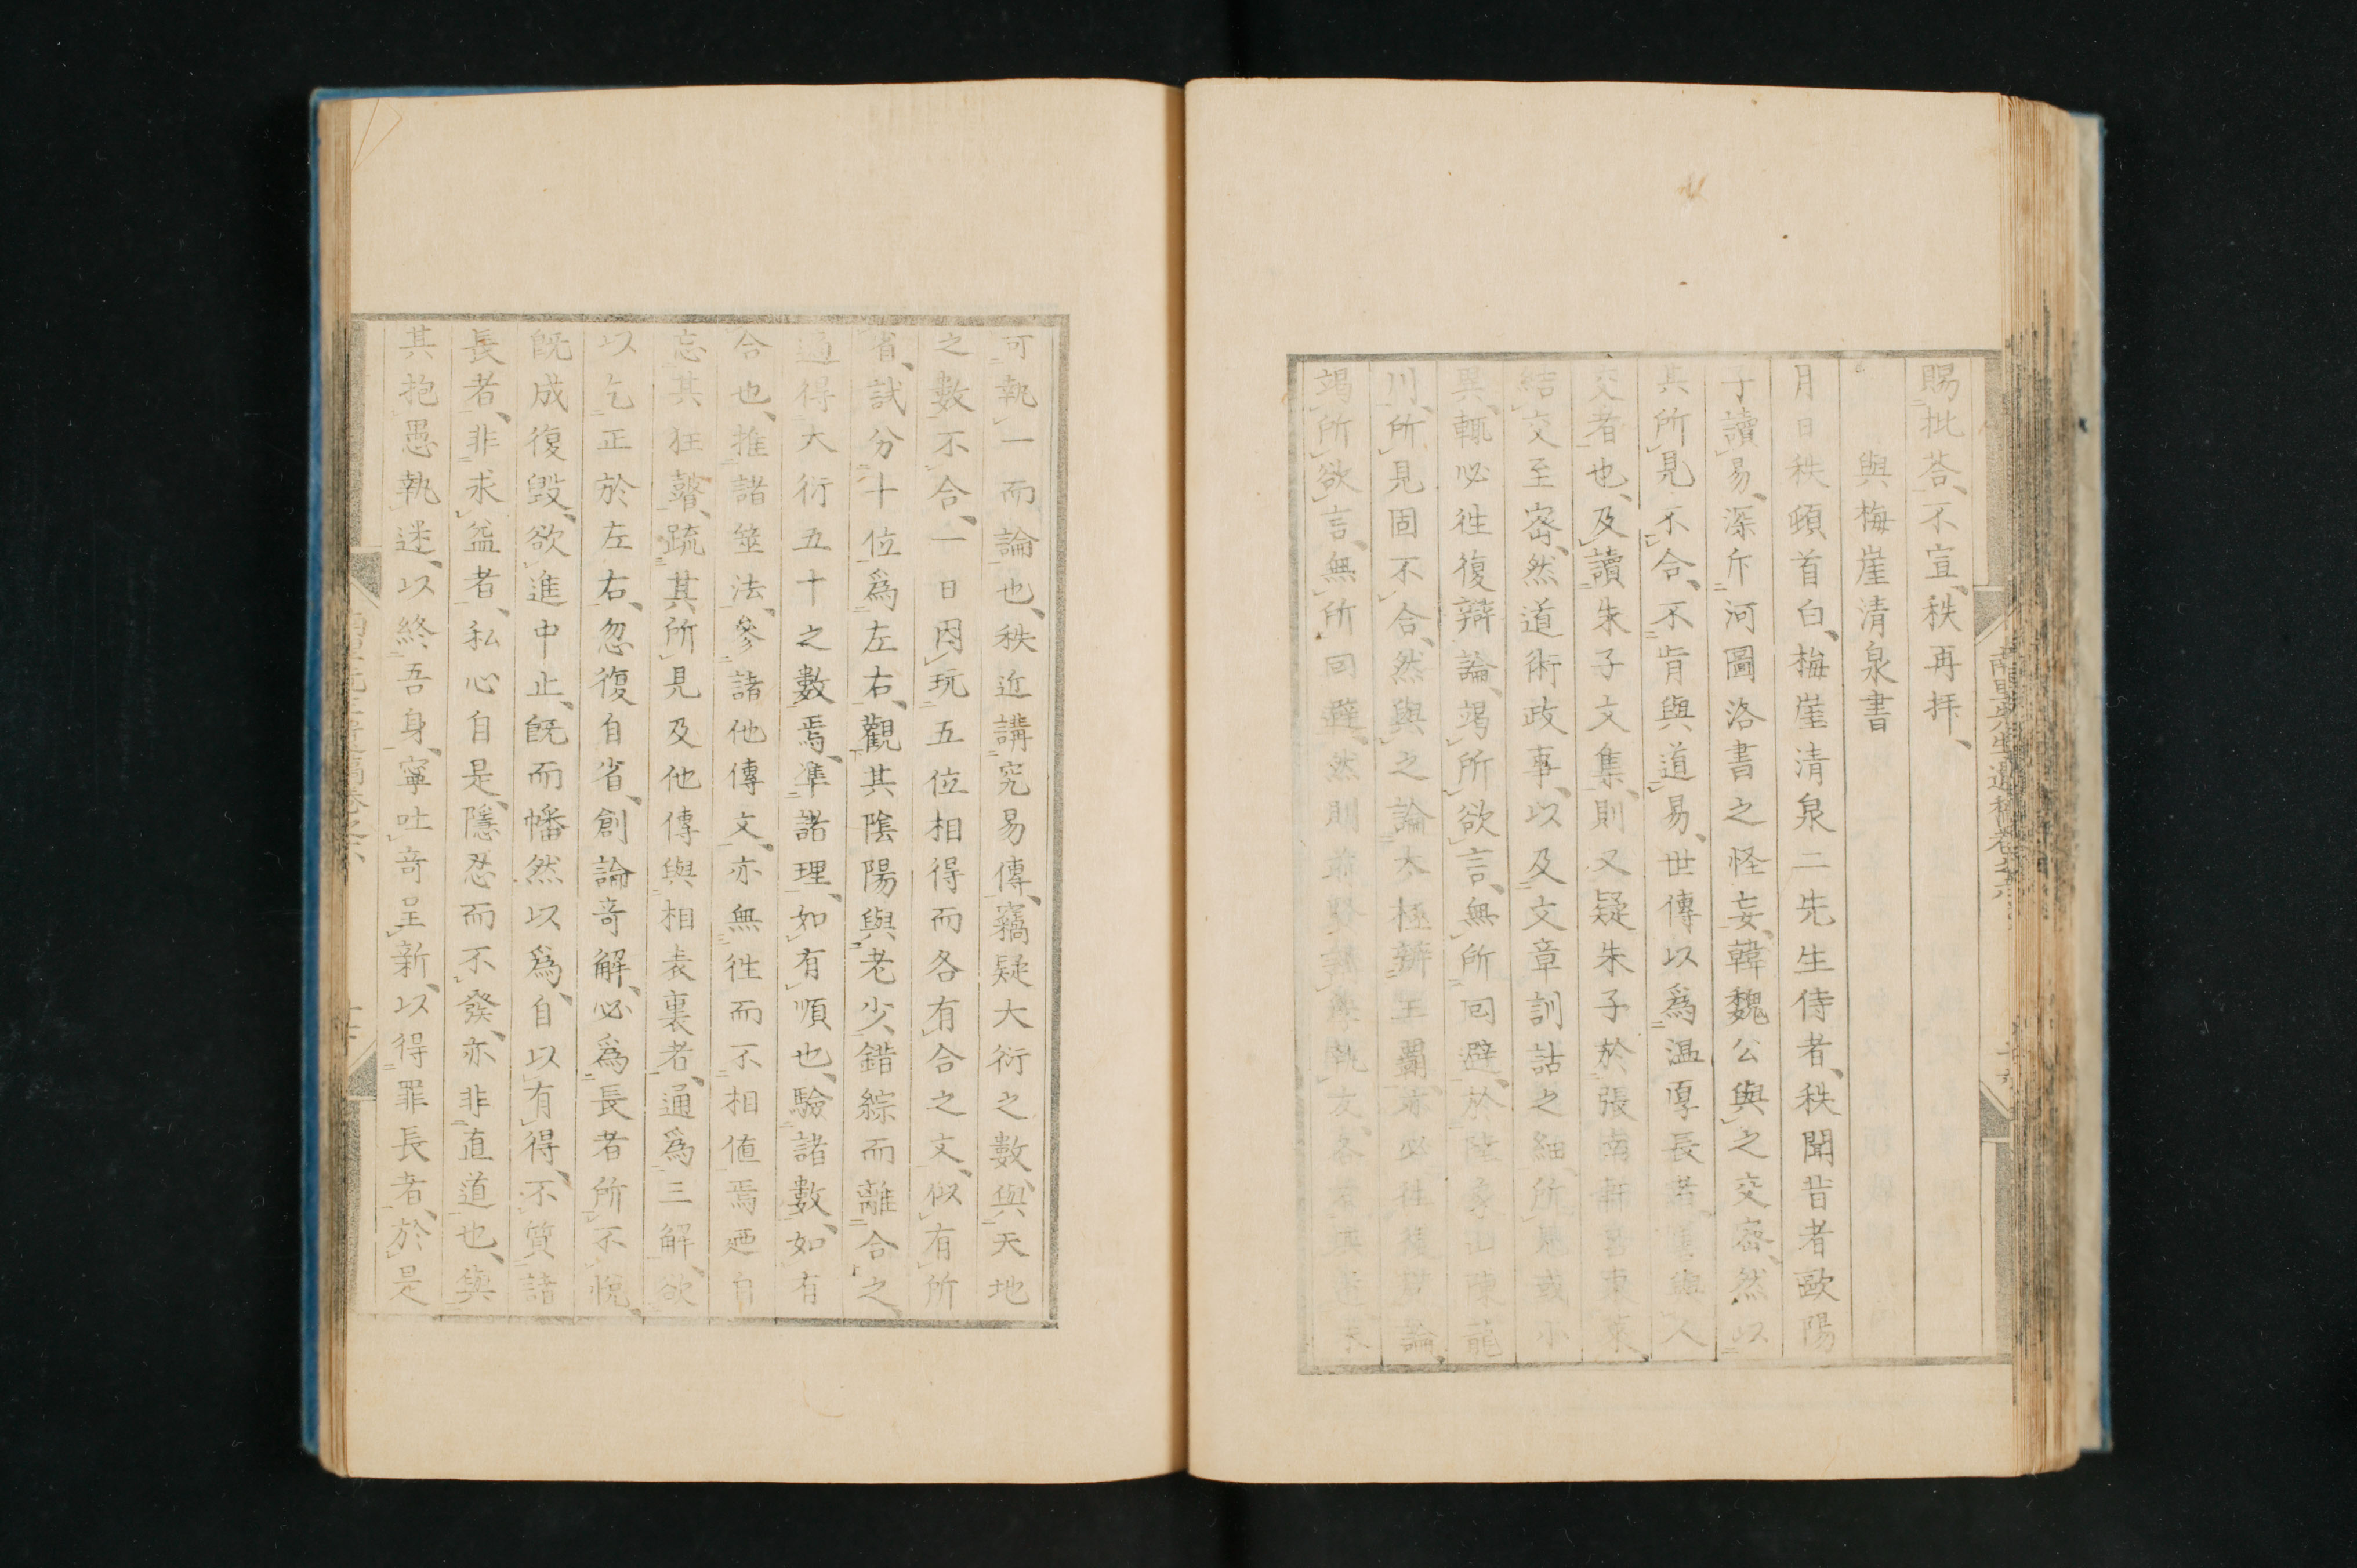 賜批荅、不宣、秩再拜、
與梅崖清泉書
月日秩頓首白、梅崖清泉二先生侍者、秩聞昔者歐陽
子讀易、深斥河圖洛書之怪妄、韓魏公與之交密、然以
其所見不合、不肯與道易、世傳以爲温厚長者、與人
交者也、及讀朱子文集、則又疑朱子於張南軒呂東萊、
結交至密、然道術政事、以及文章訓詁之細、所見或小
異、輒必往復辯論、竭所欲言、無所回避、於陸象山陳龍
川、所見固不合、然與之論太極辨王霸、亦必往復辯論、
竭所欲言、無所回避、然則前
可執一而論也、秩近講究易傳、竊疑大衍之數、與天地
之數不合、一日因玩五位相得而各有合之文、似有所
省、試分十位爲左右、觀其陰陽與老少、錯綜而離合之、
適得大衍五十之數焉、準諸理、如有順也、驗諸數、如有
合也、推諸筮法、參諸他傳文、亦無往而不相値焉、廼自
忘其狂瞽、疏其所見及他傳與相表裏者、通爲三解、欲
以乞正於左右、忽復自省、創論奇解、必爲長者所不悅、
既成復毀、欲進中止、既而幡然以爲、自以有得、不質諸
長者、非求益者、私心自是、隱忍而不發、亦非直道也、與
其抱愚執迷、以終吾身、寧吐奇呈新、以得罪長者、於是